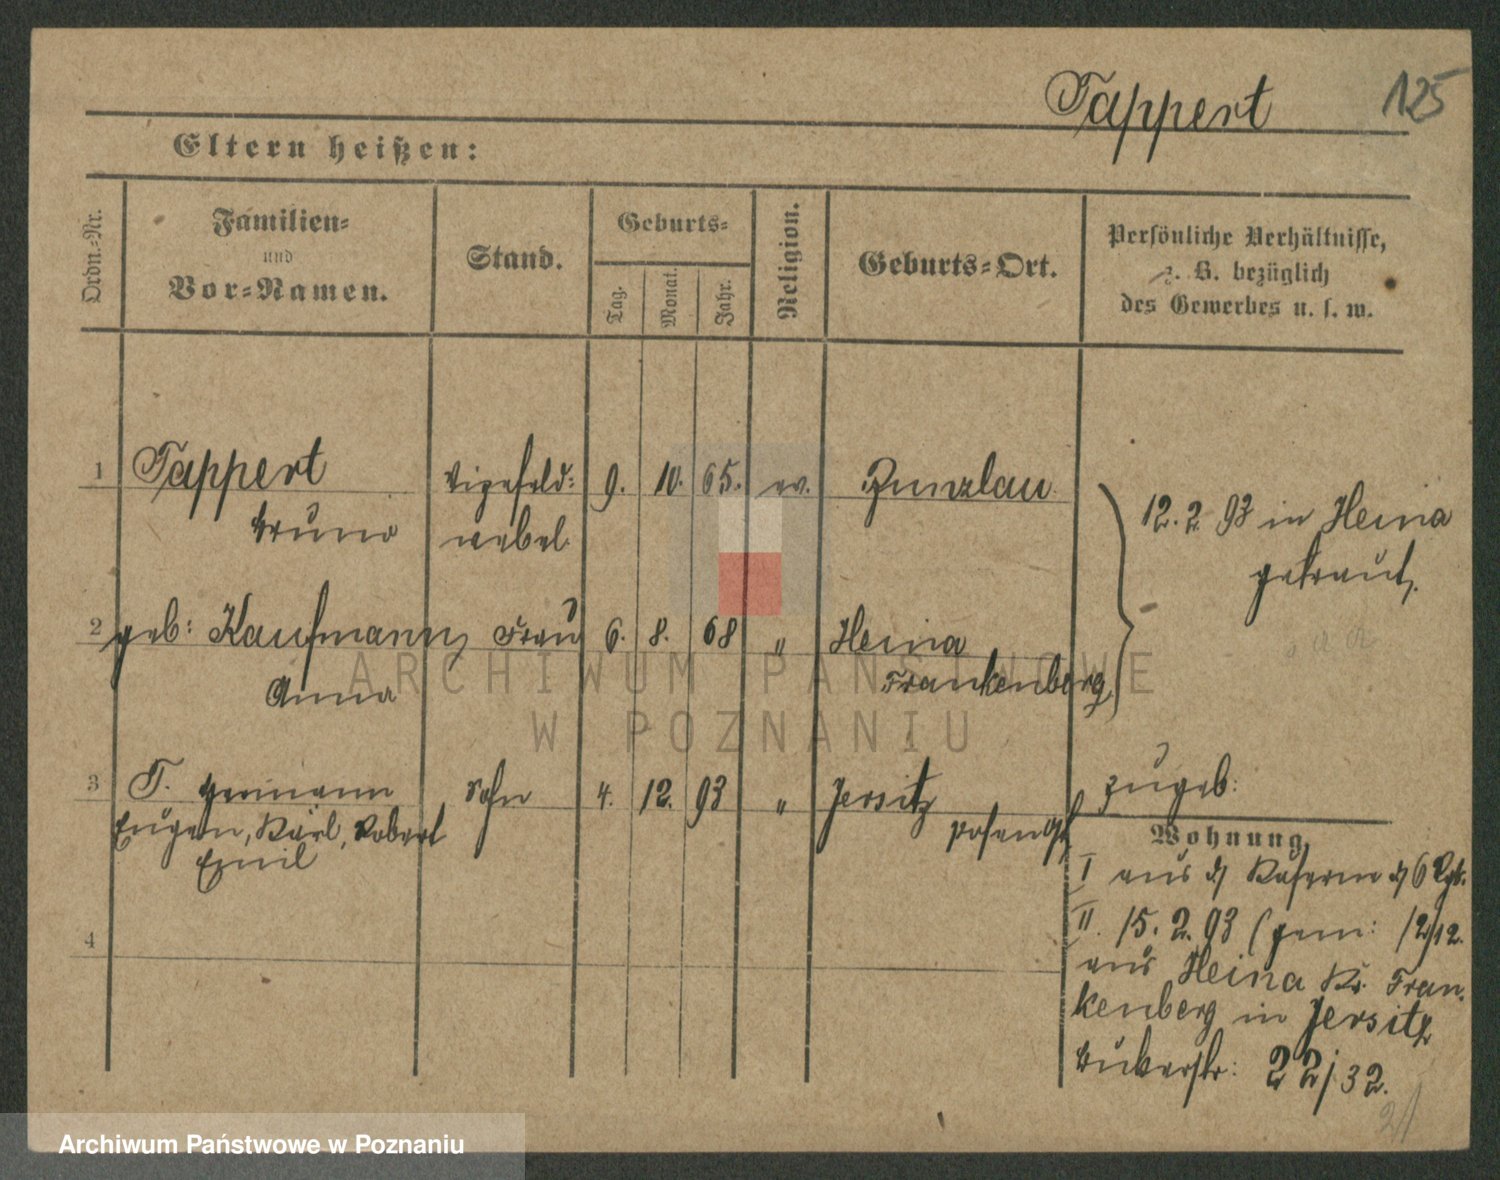 Tappert 125
Eltern heißen:
Ordn.=Nr.
Familien=
und
Vor=Namen.
Stand.
Geburts=
Tag.
Monat.
Jahr.
Religion.
Geburts=Ort.
Persönliche Verhältnisse,
z. B. bezüglich
des Gewerbes u. s. w.
1 Tappert Vizefeld= 9. 10. 65. ev. Bunzlau
Bruno webel
12. 2. 93 in Heina
getraut.
2 geb: Kaufmann Frau 6. 8. 68 " Heina
Anna Frankenberg
3 T. Hermann Sohn 4. 12. 93 " Jersitz
zugeb:
Eugen, Karl, Robert Posen
Emil
4
Wohnung
I aus d Kaserne d 6 Rgt.
II. 15. 2. 93 (gem: 12/12.
aus Heina Kr. Fran=
kenberg in Jersitz
22/32.
21
ARCHIWUM PAŃSTWOWE
W POZNANIU
Archiwum Państwowe w Poznaniu